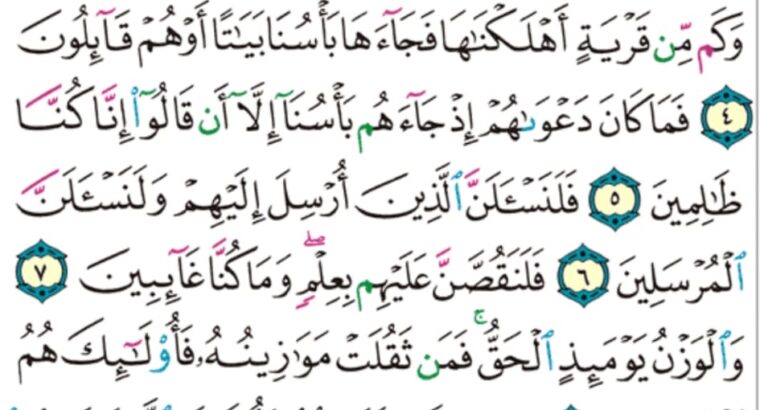 وَكَم مِّن قَرْيَةٍ أَهْلَكْنَـٰهَا فَجَآءَهَا بَأْسُنَا بَيَـٰتًا أَوْ هُمْ قَآئِلُونَ
٤ فَمَا كَانَ دَعْوَىٰهُمْ إِذْ جَآءَهُم بَأْسُنَآ إِلَّآ أَن قَالُوٓا۟ إِنَّا كُنَّا
ظَـٰلِمِينَ ٥ فَلَنَسْـَٔلَنَّ ٱلَّذِينَ أُرْسِلَ إِلَيْهِمْ وَلَنَسْـَٔلَنَّ
ٱلْمُرْسَلِينَ ٦ فَلَنَقُصَّنَّ عَلَيْهِم بِعِلْمٍ ۖ وَمَا كُنَّا غَآئِبِينَ ٧
وَٱلْوَزْنُ يَوْمَئِذٍ ٱلْحَقُّ ۚ فَمَن ثَقُلَتْ مَوَٰزِينُهُۥ فَأُو۟لَـٰٓئِكَ هُمُ